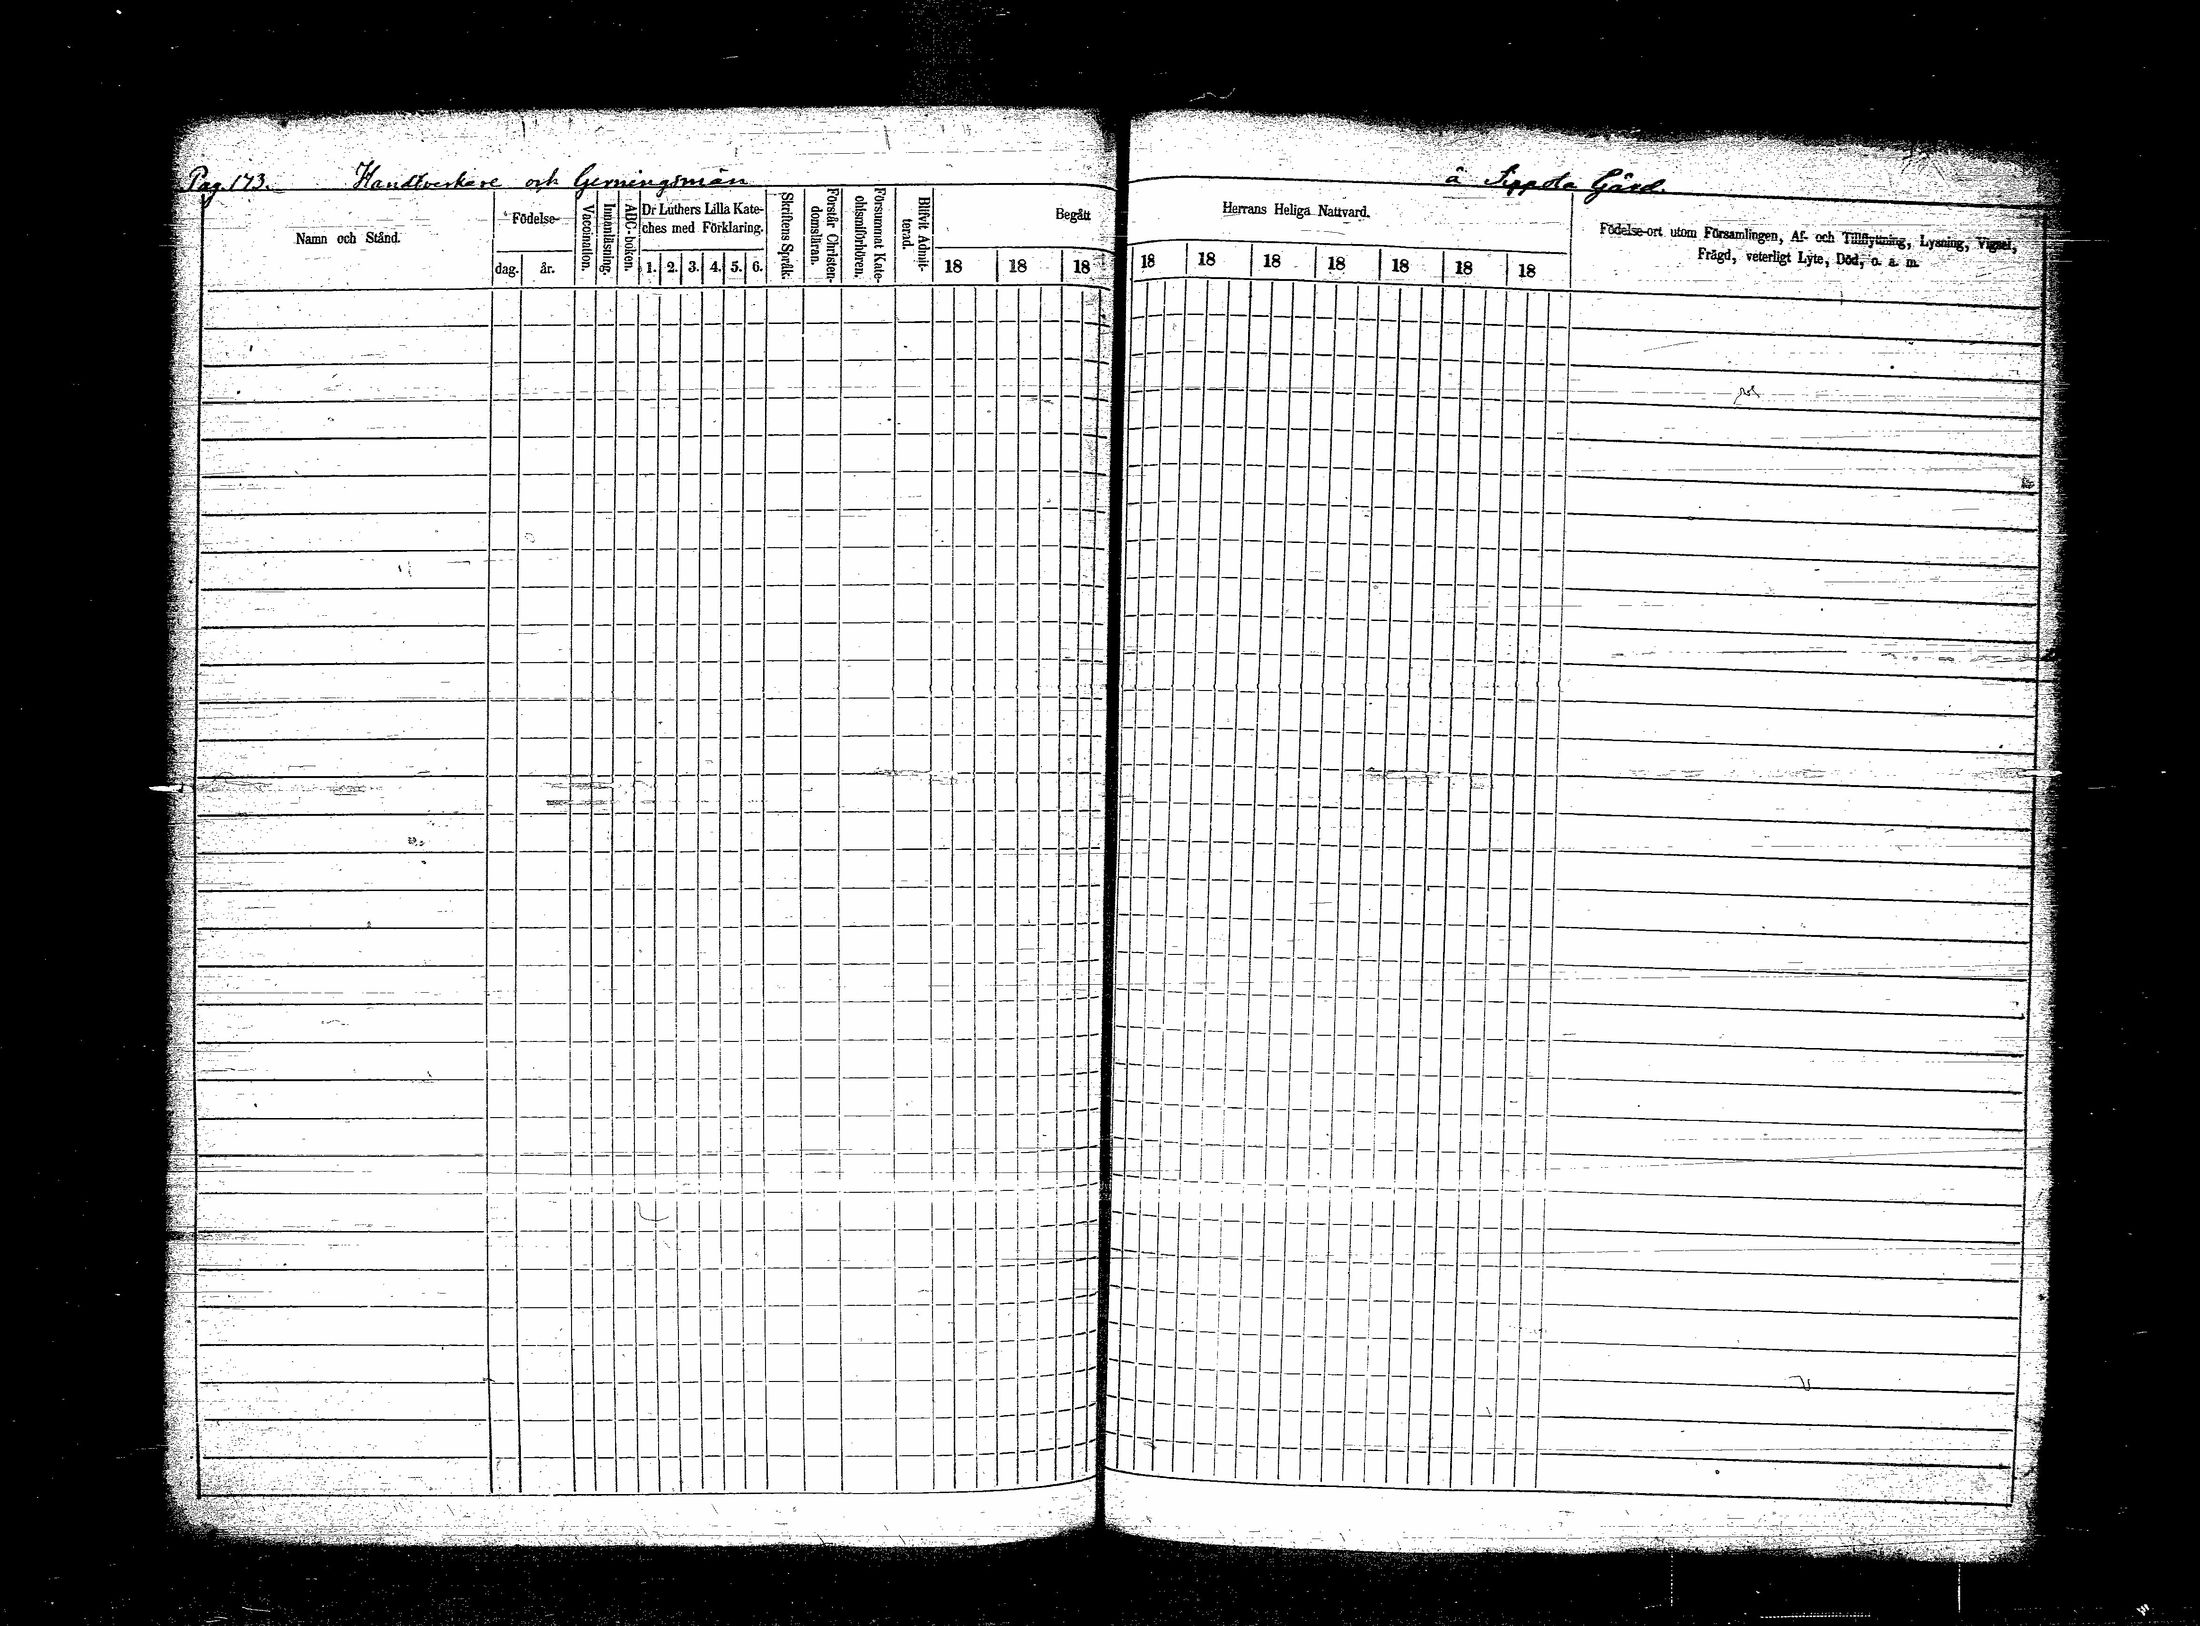 Pag. 173. Handtverkare och Gerningsmän å Sippola Gård.
Namn och Stånd.
Födelse-
dag. år.
Vaccination.
Innanläsning.
ABC-boken.
Dr Luthers Lilla Kate-
ches med Förklaring.
1. 2. 3. 4. 5. 6.
Skriftens Språk.
Förstår Christen-
domsläran.
Försummat Kate-
chismiförhören.
Blifvit Admit-
terad.
Begått Herrans Heliga Nattvard.
18 18 18 18 18 18 18 18 18 18
Födelse-ort utom Församlingen, Af- och Tillflyttning, Lysning, Vigsel,
Frägd, veterligt Lyte, Död, o. a. m.